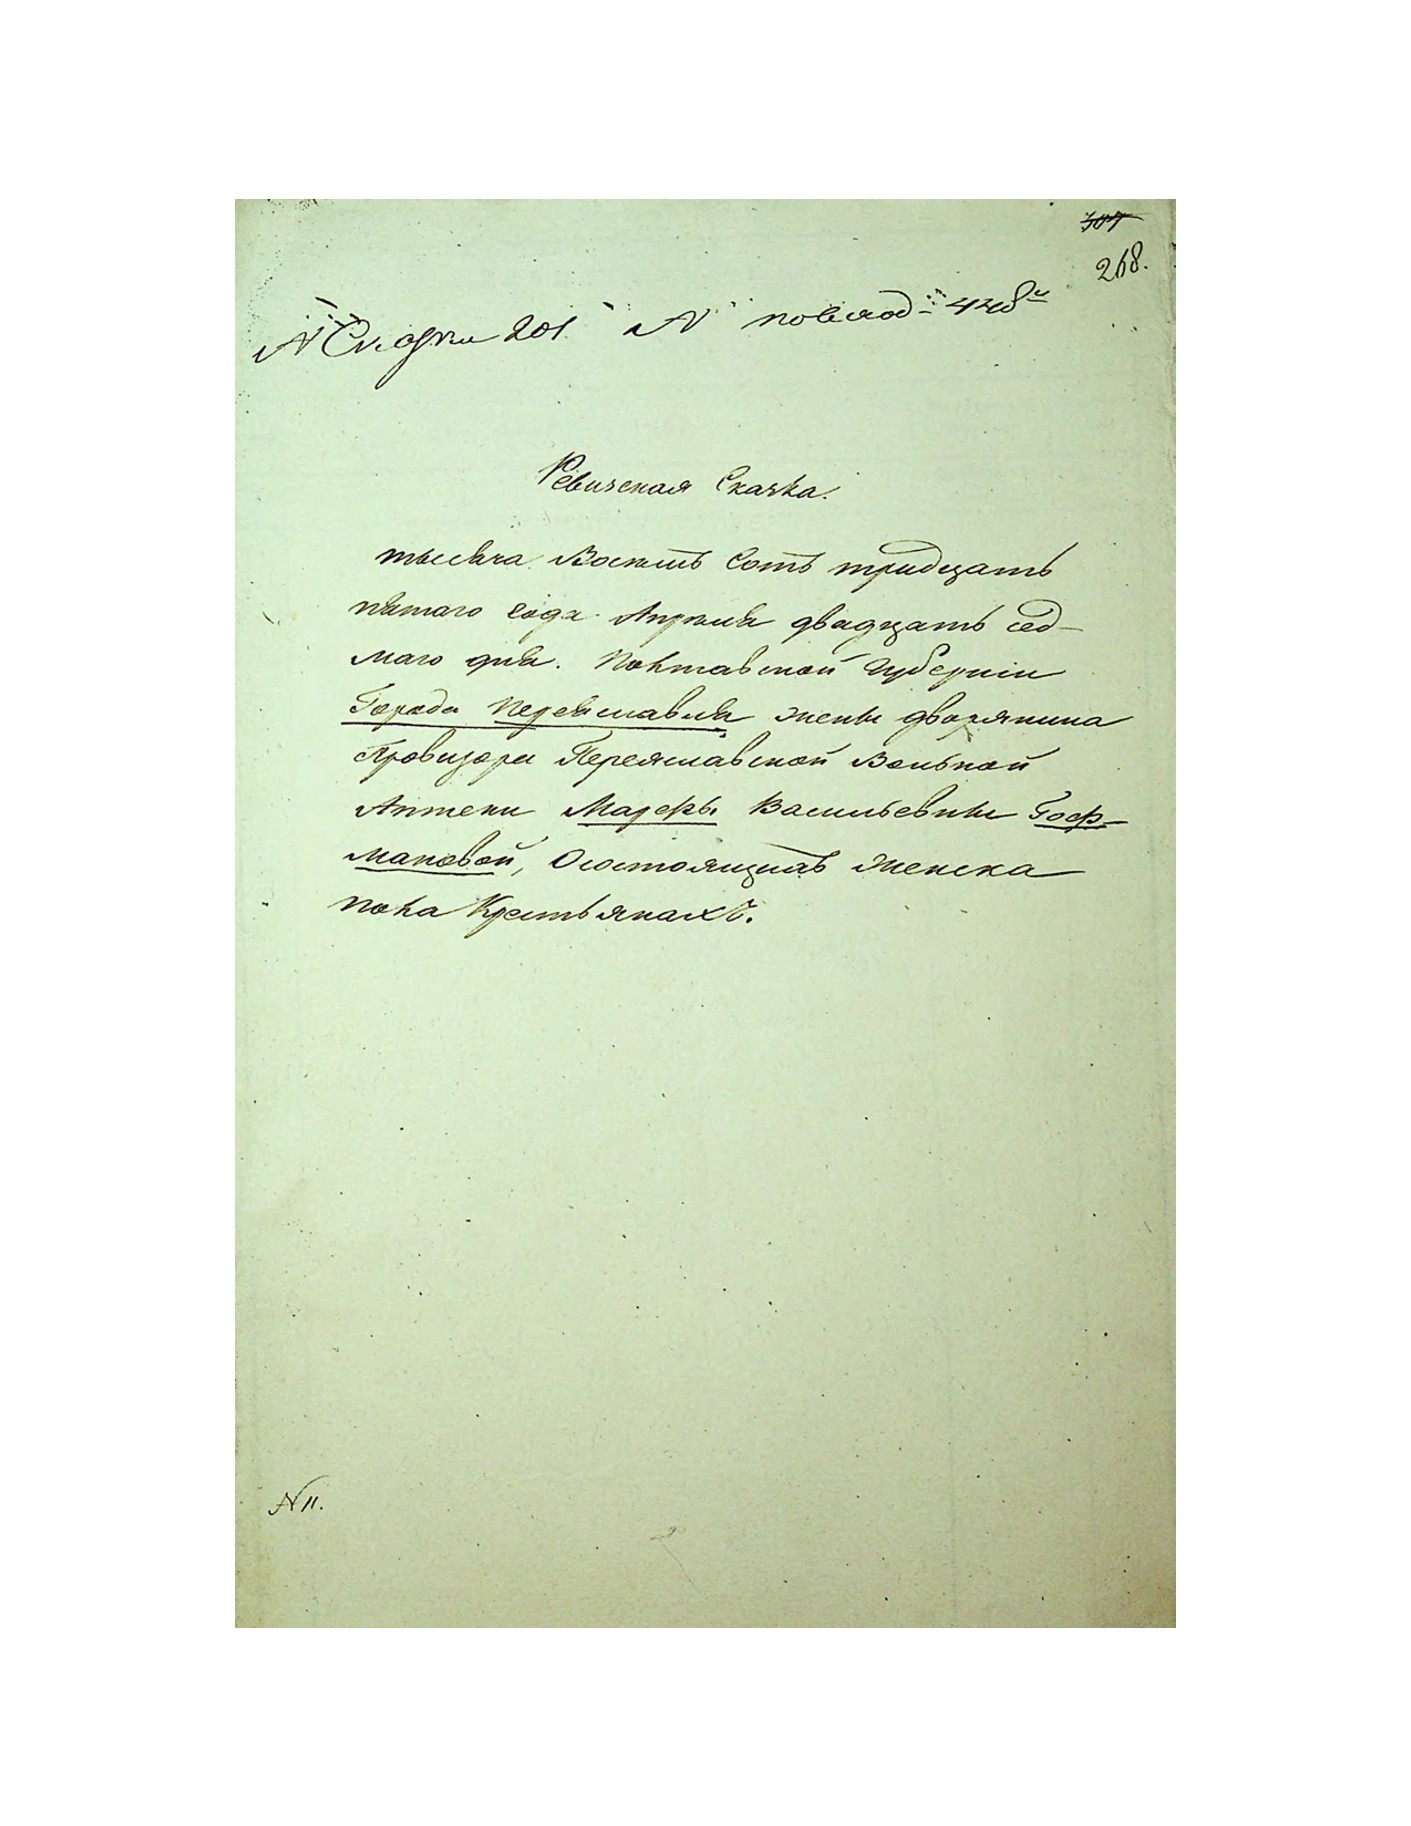 307
268.
№ Сказки 201 № повсход: 448й
Ревизская Сказка.
тысяча Восемь Сотъ тридцать
пятаго года Апреля двадцать сед-
маго дня. Полтавской губернiи
Города Переяславля жены дворянина
Провизора Переяславской Вольной
Аптеки Марфы Васильевны Гоф-
мановой, Осостоящихъ женска
пола Крестьянахъ.
№ 11.